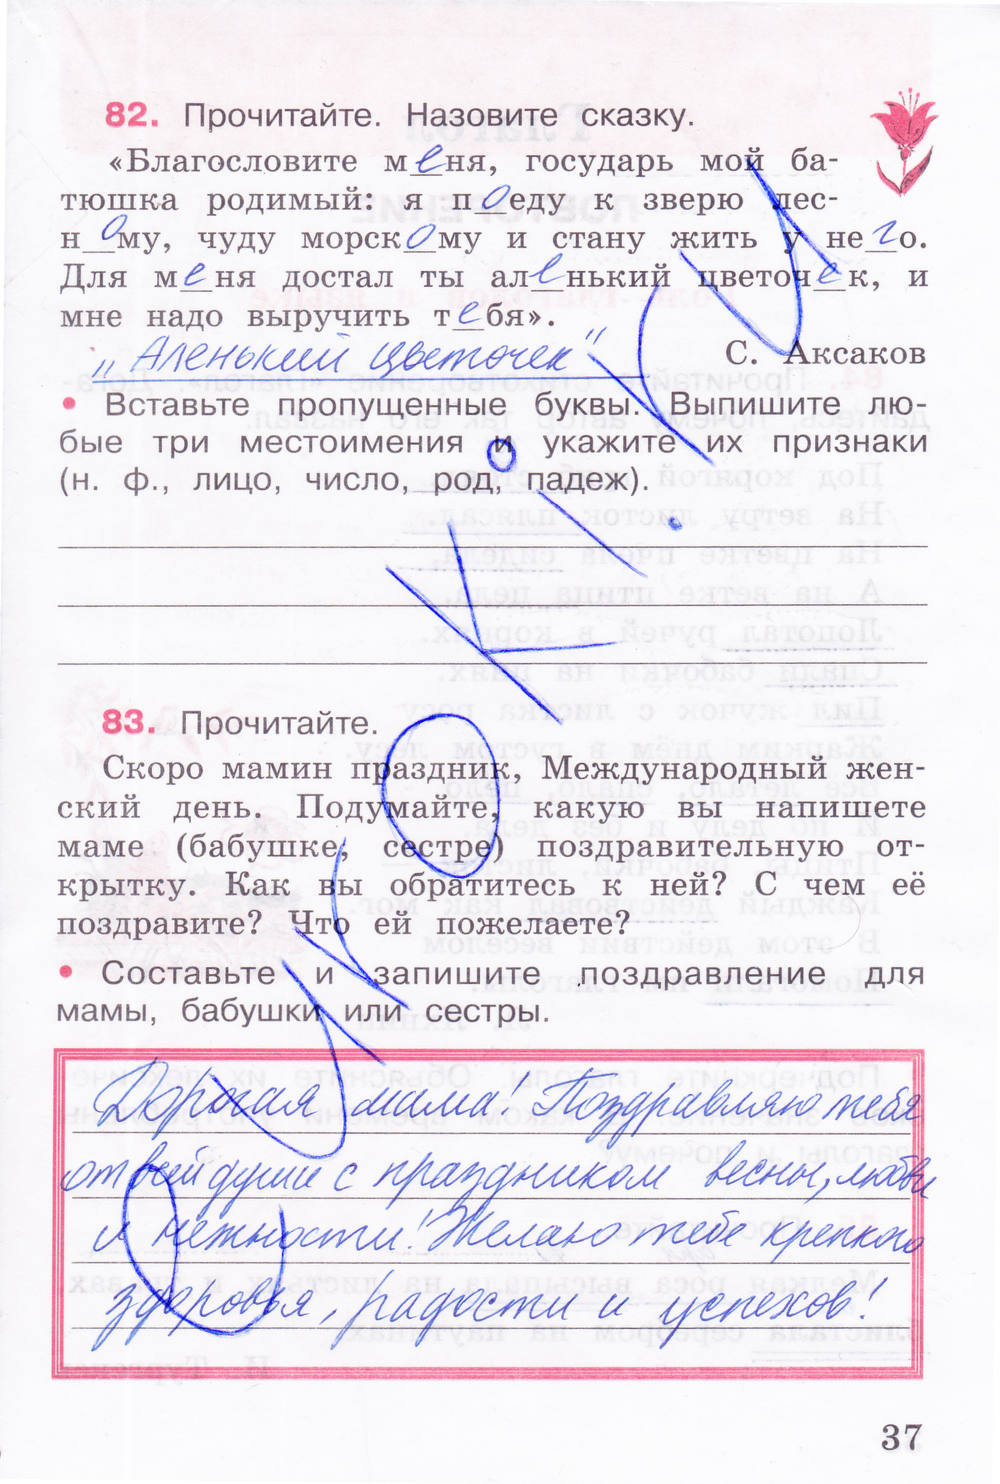 82. Прочитайте. Назовите сказку.
«Благословите меня, государь мой ба-
тюшка родимый: я поеду к зверю лес-
ному, чуду морскому и стану жить у него.
Для меня достал ты аленький цветочек, и
мне надо выручить тебя».
„Аленький цветочек"
С. Аксаков
• Вставьте пропущенные буквы. Выпишите лю-
бые три местоимения и укажите их признаки
(н. ф., лицо, число, род, падеж).
83. Прочитайте.
Скоро мамин праздник, Международный жен-
ский день. Подумайте, какую вы напишете
маме (бабушке, сестре) поздравительную от-
крытку. Как вы обратитесь к ней? С чем её
поздравите? Что ей пожелаете?
• Составьте и запишите поздравление для
мамы, бабушки или сестры.
Дорогая мама! Поздравляю тебя
от всей души с праздником весны, любви
и нежности! Желаю тебе крепкого
здоровья, радости и успехов!
37